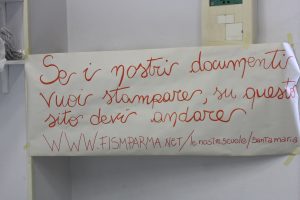 Se i nostri documenti
vuoi stampare, su questo
sito devi andare
WWW.FISMPARMA.NET/lenostrescuole/santamaria